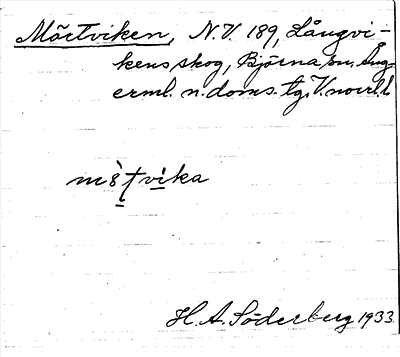 Mörtviken, N.V. 189, Långvi-
kens skog, Björna sn, Ång-
erml. n. doms. tg. V.norrl. l.
H. A. Söderberg 1933.